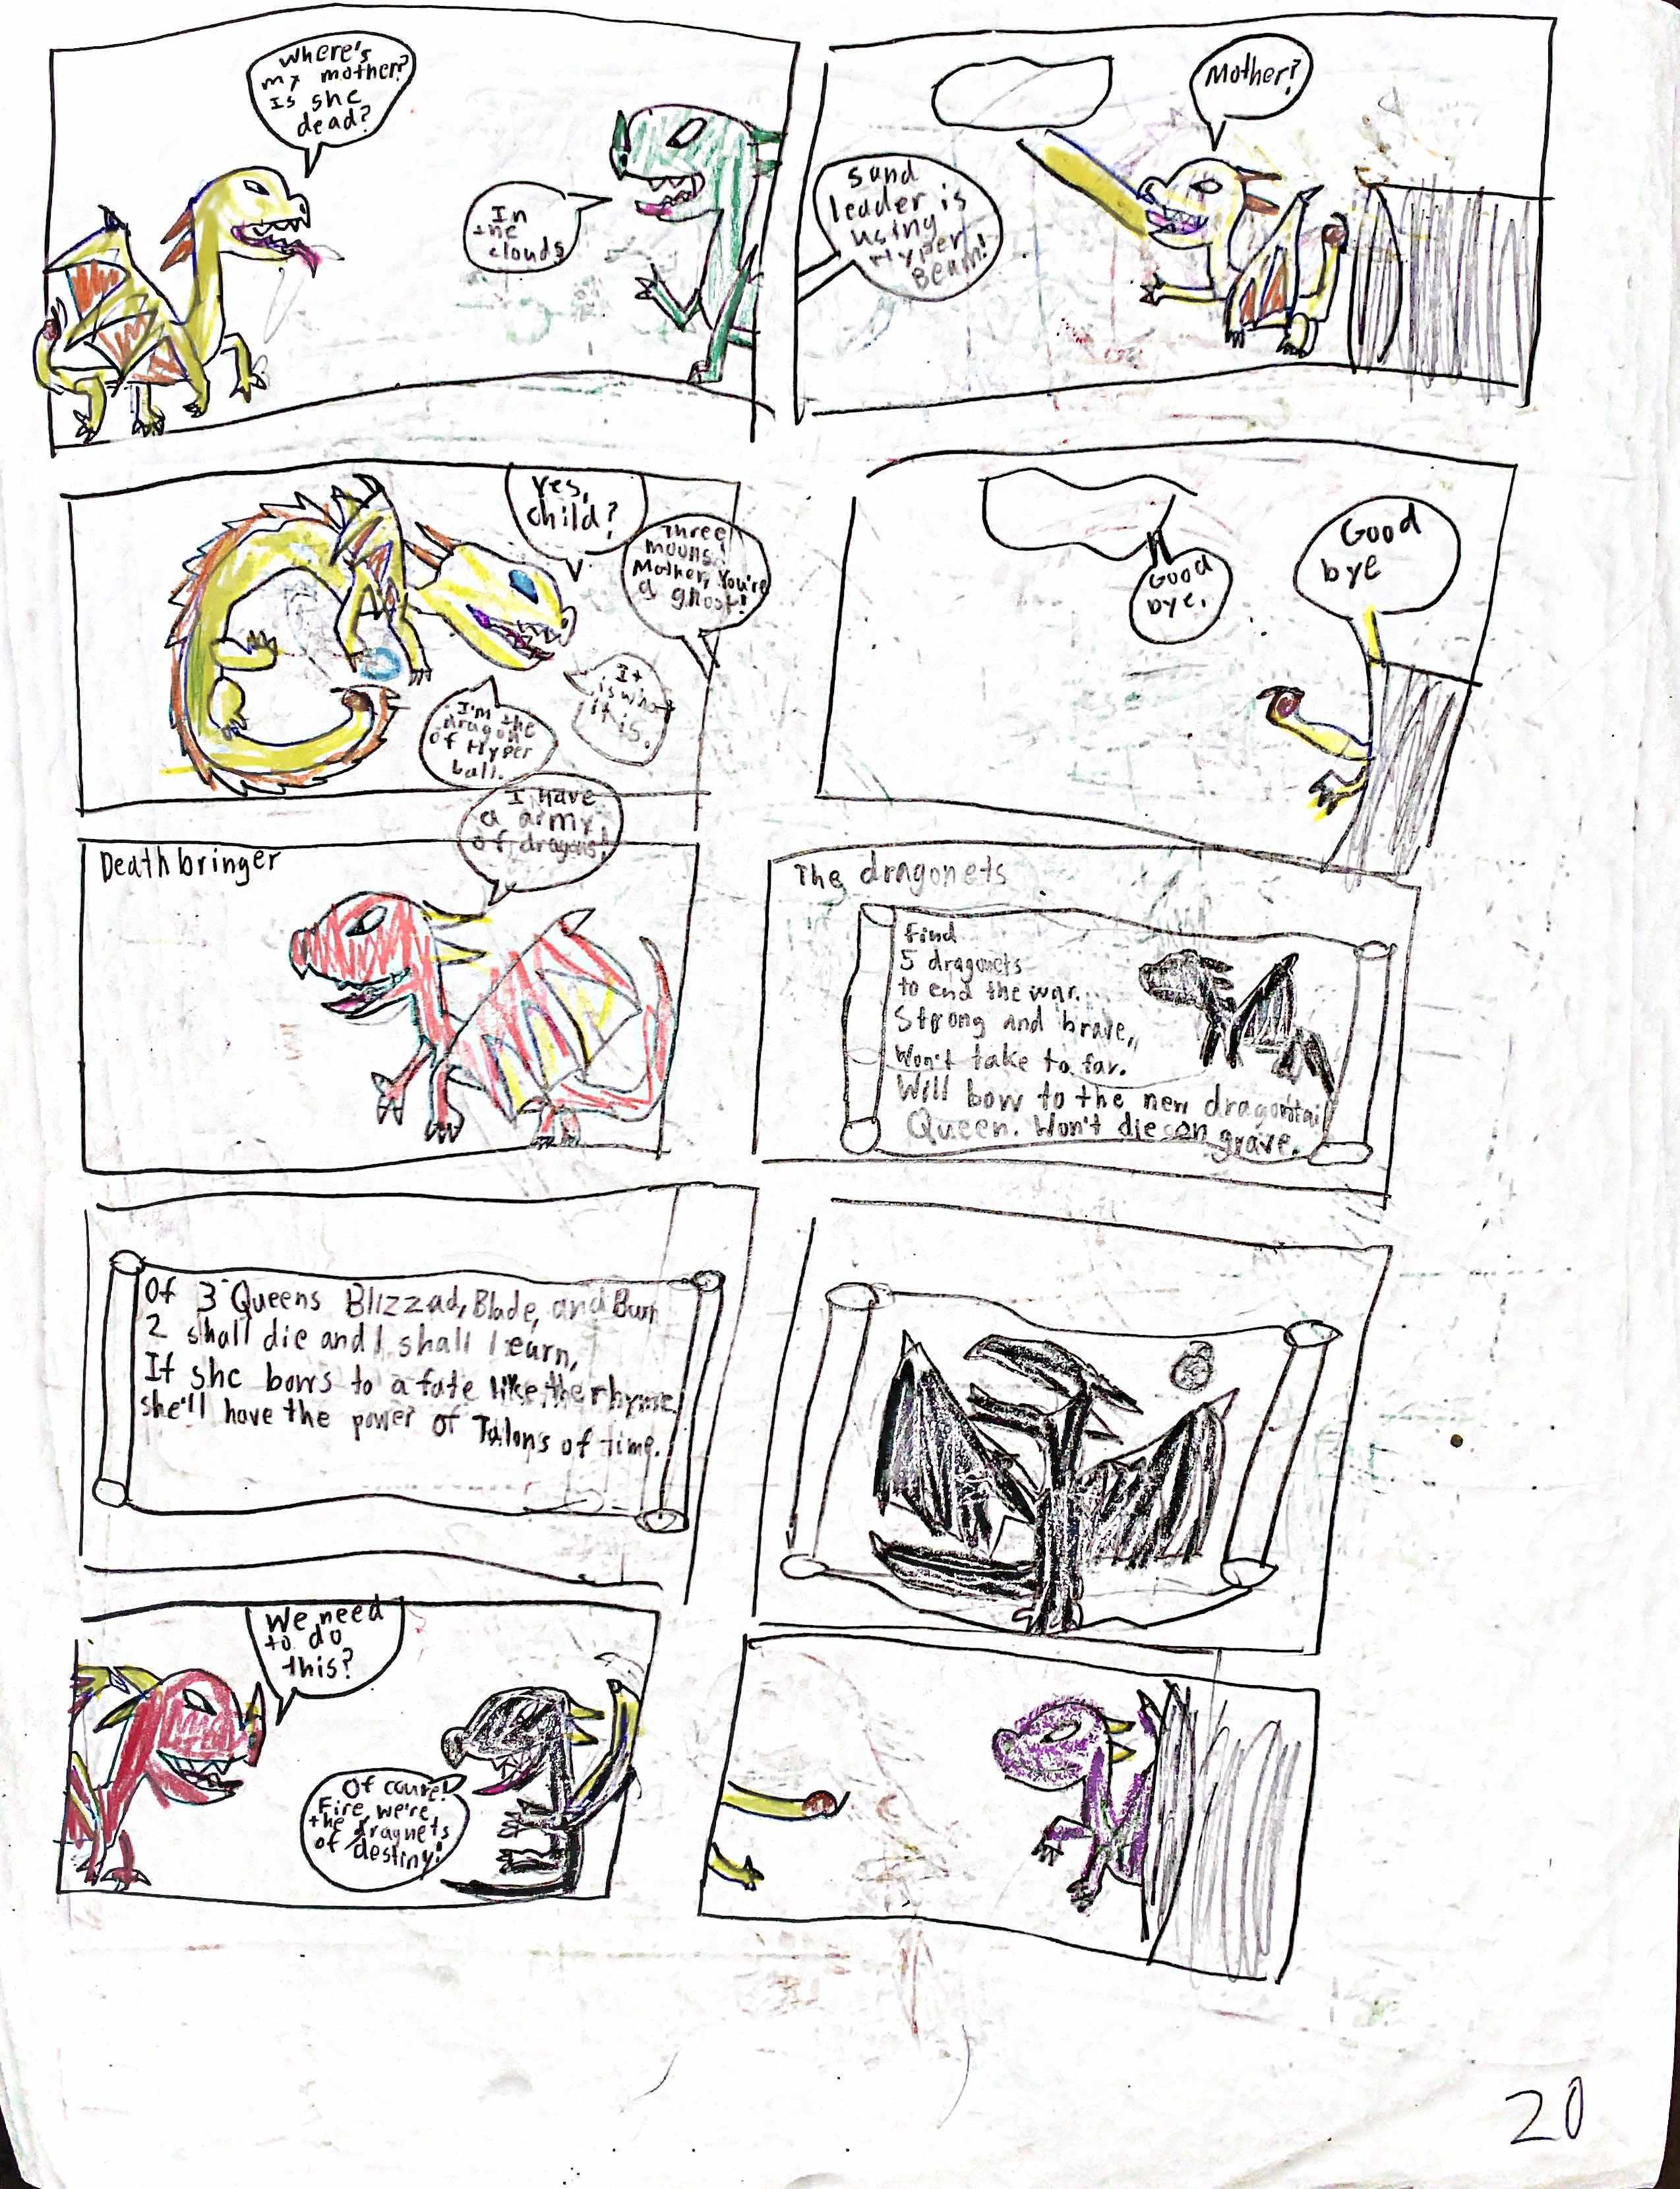 Where's
my mother?
Is she
dead?
In
the
clouds
Mother?
Sand
leader is
using
Hyper
Beam!
Yes,
child?
Three
moons!
Mother, You're
a ghost!
I'm the
dragon
of Hyper
ball.
It
is what
it is.
Good
bye.
Good
bye
Deathbringer
I have
a army
of dragons!
The dragonets
Find
5 dragonets
to end the war.
Strong and brave,
Won't take to far.
Will bow to the new dragontail
Queen. Won't die on grave.
Of 3 Queens Blizzad, Blade, and Burn
2 shall die and 1 shall learn,
If she bows to a fate like the rhyme
she'll have the power of Talons of time.
We need
to do
this?
Of coure!
Fire, we're
the dragnets
of destiny!
20